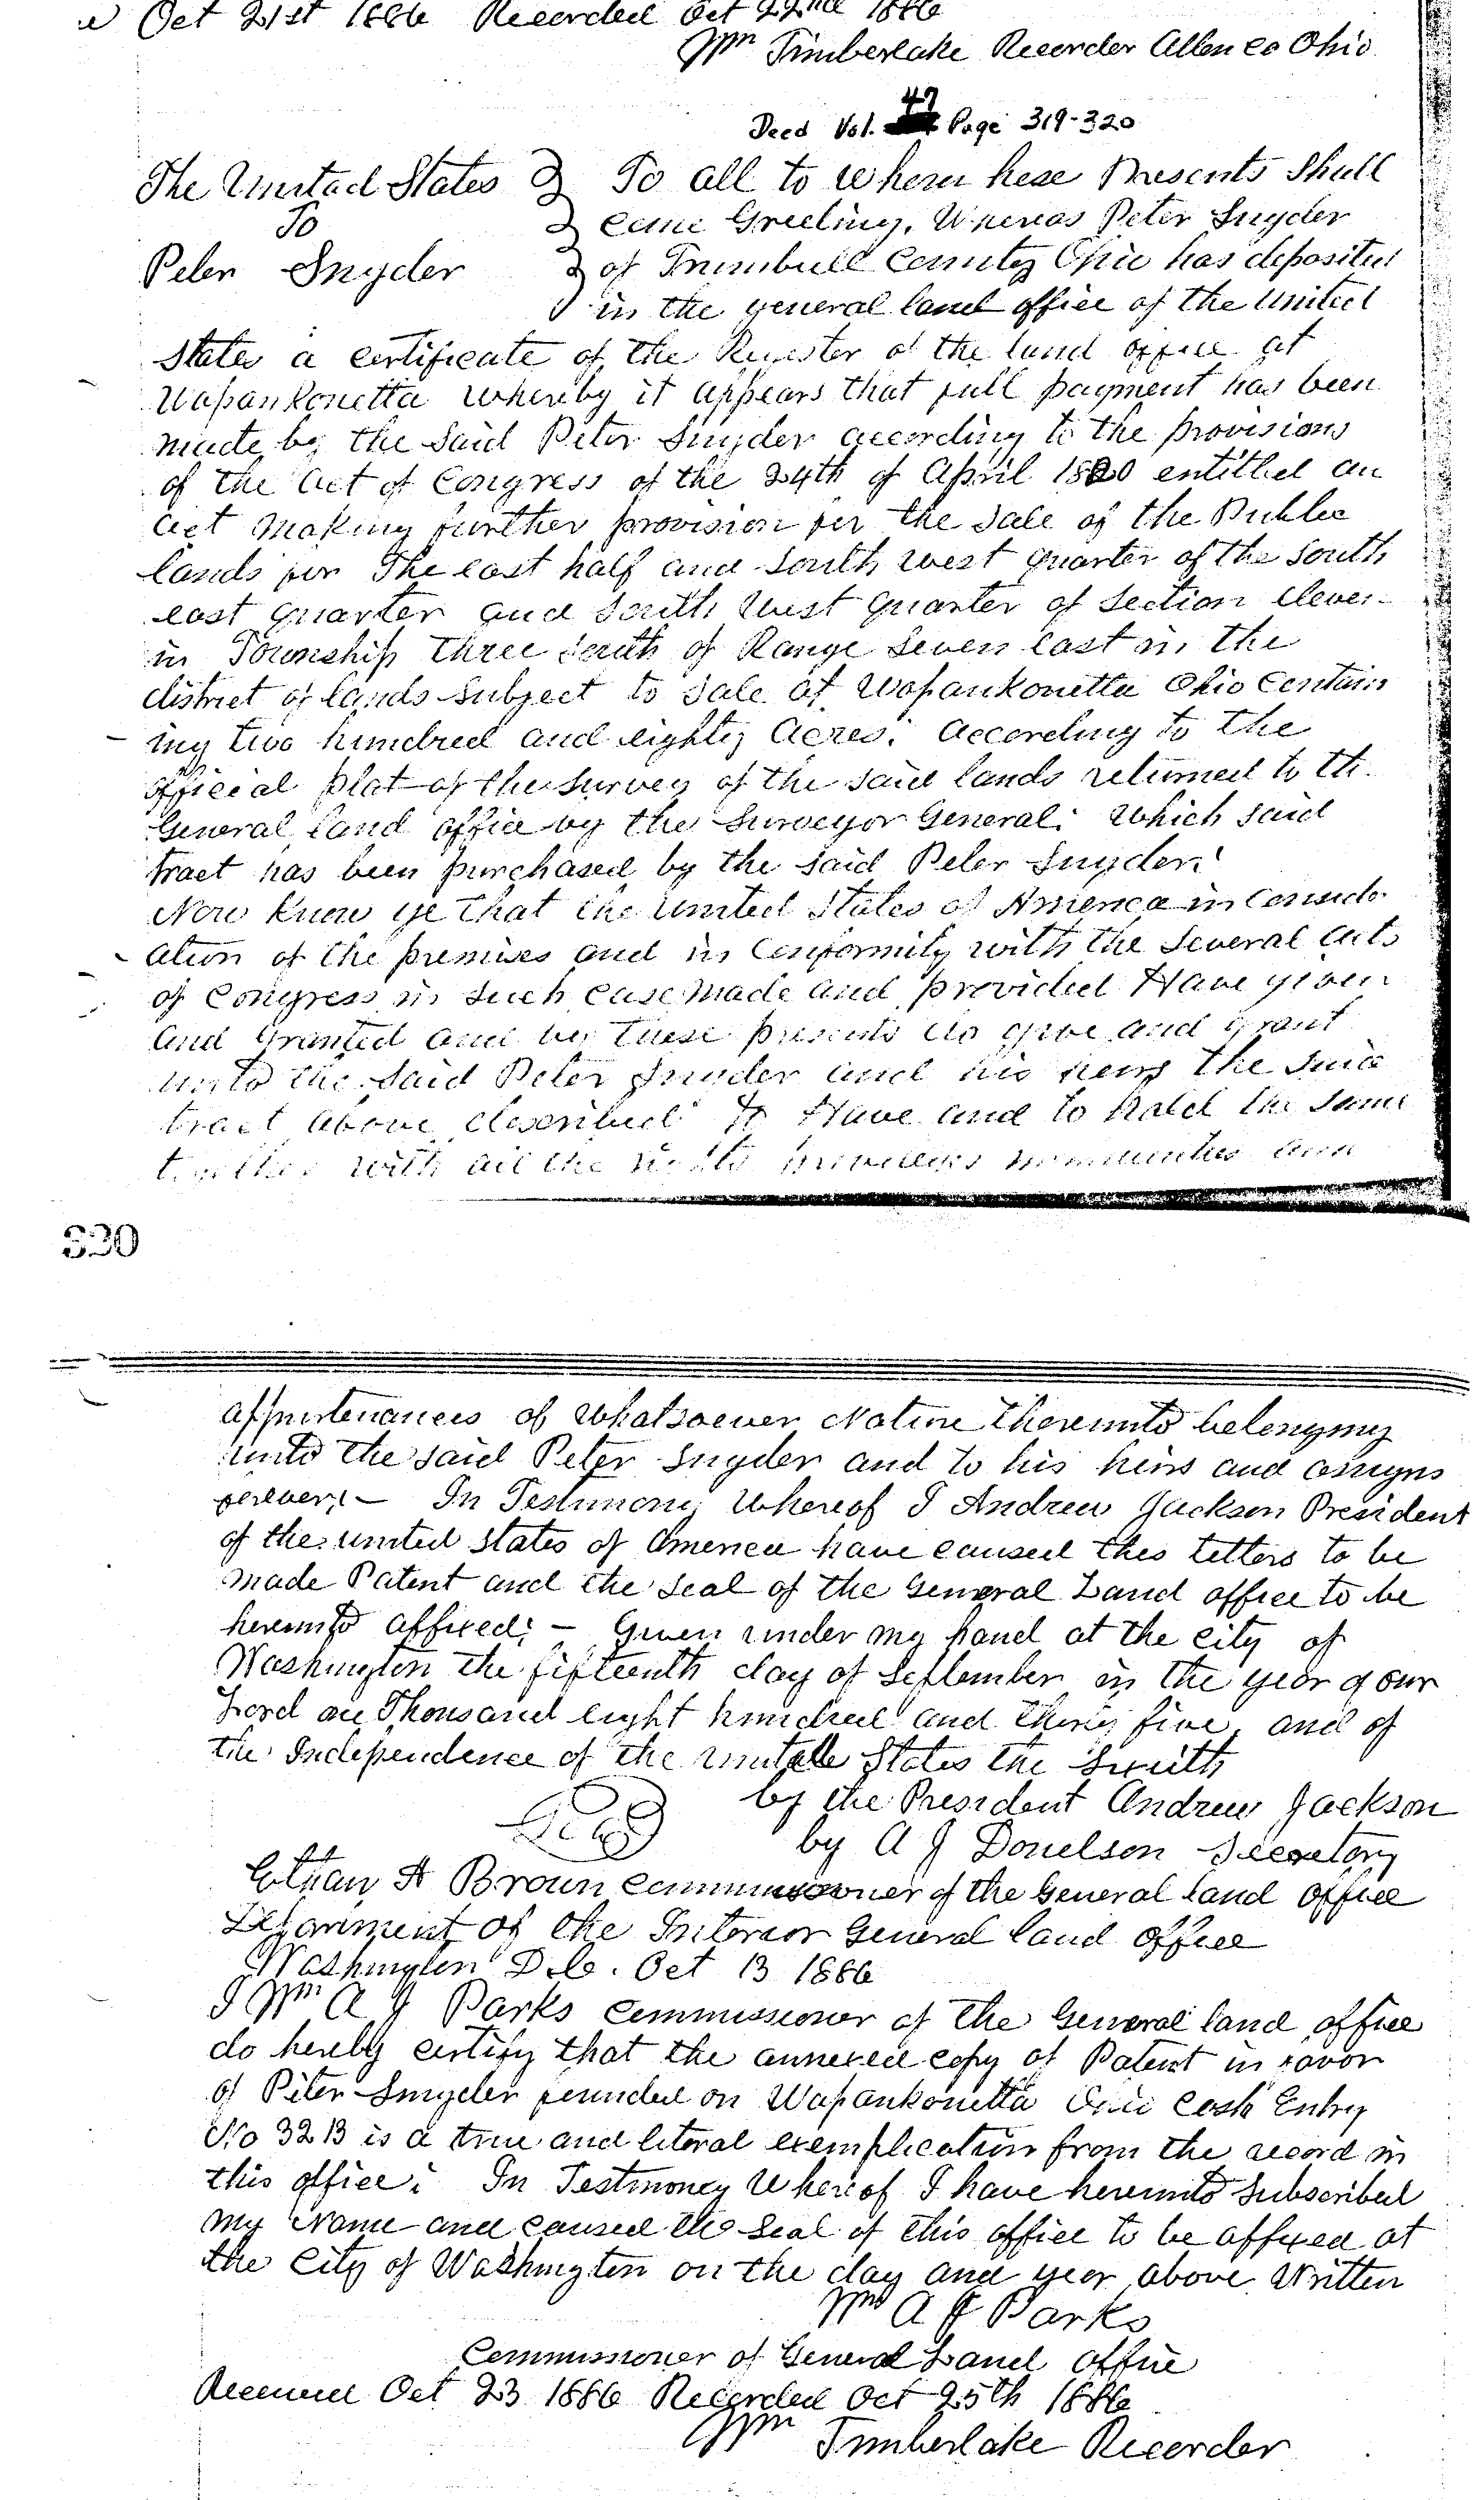 Oct 21st 1886 Recorded Oct 22nd 1886
Wm Timberlake Recorder Allen Co Ohio
47
Deed Vol. Page 319-320
The United States To all to Whom hese Presents Shall
To
Come Greeting, Whereas Peter Snyder
Peter Snyder of Trumbull County Ohio has deposited
in the general land office of the United
State a certificate of the Register of the land office at
Wapankonetta whereby it appears that full payment has been
made by the said Peter Snyder according to the provisions
of the Act of Congress of the 24th of April 1820 entitled an
act making further provision for the sale of the Public
lands for The east half and south west quarter of the south
east quarter and south west quarter of section eleven
in Township three south of Range seven east in the
district of lands subject to sale at Wapankonetta Ohio Contain
ing two hundred and eighty acres. according to the
official plat of the survey of the said lands returned to th
General land office by the Surveyor General: Which said
tract has been purchased by the said Peter Snyder
Now know ye that the United States of America in Conside
ation of the premises and in Conformity with the several acts
of Congress in such case made and provided Have given
and Granted and by these presents do give and grant
unto the said Peter Snyder and his heirs the said
tract above described To Have and to hold the same
together with all the rights priviliges immunities and
320
appurtenances of whatsoever Nature thereunto belonging
unto the said Peter Snyder and to his heirs and assigns
forever; — In Testimony Whereof I Andrew Jackson President
of the united states of America have caused thes letters to be
made Patent and the seal of the General Land office to be
hereunto affixed; — Given under my hand at the city of
Washington the fifteenth day of September in the year of our
Lord one Thousand eight hundred and thirty five, and of
the Independence of the States the Sixtith
by the President Andrew Jackson
by A J Donelson Secretary
Ethan A Brown commissioner of the General land office
Department of the Interior General land office
Washington D.C. Oct 13 1886
I Wm A J Parks commissioner of the General land office
do hereby certify that the annexed copy of Patent in favor
of Peter Snyder founded on Wapankonetta Ohio Cash Entry
No 3213 is a true and literal exemplication from the record in
this office. In Testmoney Whereof I have hereunto subscribed
my Name and caused the seal of this office to be affixed at
the City of Washington on the day and year above Written
Wm A J Parks
Commissioner of General Land office
Received Oct 23 1886 Recorded Oct 25th 1886
Wm Timberlake Recorder